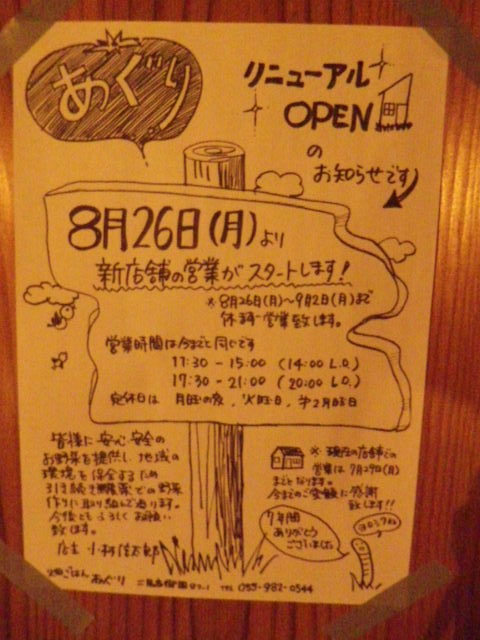 あぐり
リニューアル
OPEN
の
お知らせです
8月26日(月)より
新店舗の営業がスタートします!
※8月26日(月)〜9月2日(月)まで
休まず営業致します。
営業時間は今までと同じです
11:30 - 15:00 (14:00 L.O.)
17:30 - 21:00 (20:00 L.O.)
定休日は 月曜の夜、火曜日、第2月曜日
皆様に安心安全の
お野菜を提供し、地域の
環境を保全するため
引き続き無農薬での野菜
作りに取り組んで参ります。
今後ともよろしくお願い
致します。
店主 小林信太郎
※現在の店舗での
営業は7月29日(月)
までとなります。
今までのご愛顧に感謝
致します!!
7年間
ありがとう
ございました
畑ごはん あぐり
TEL 055-982-0544